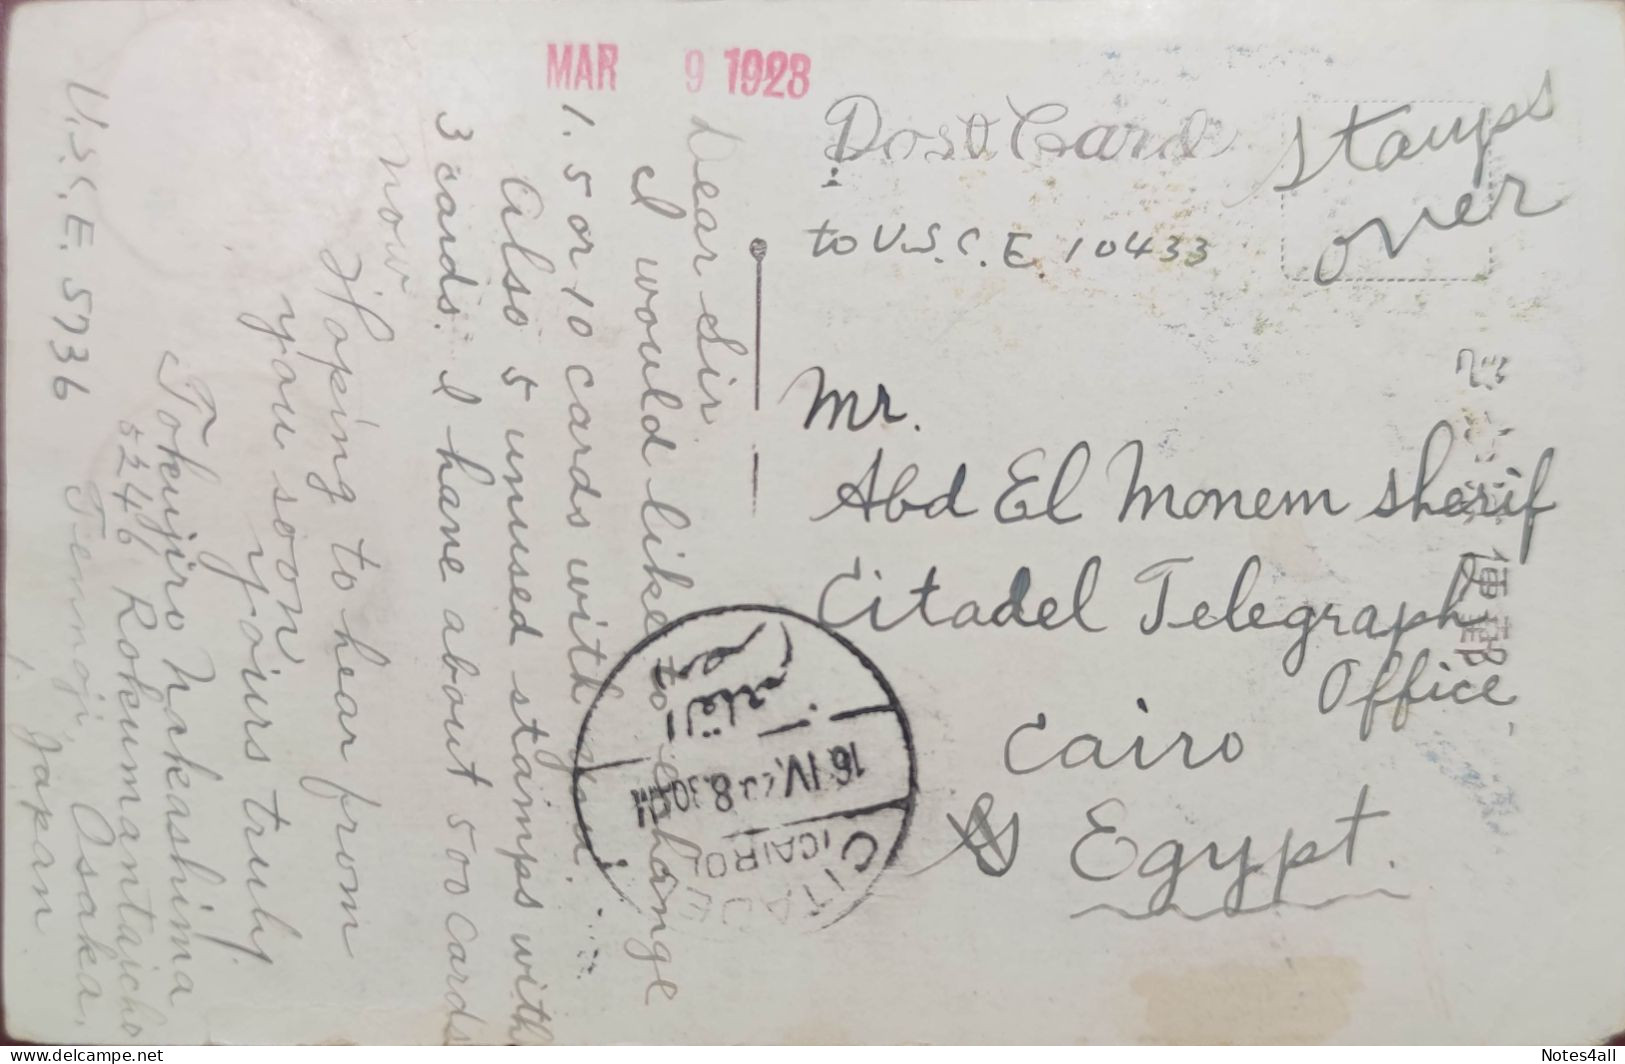 MAR 9 1928
Post Card
Stamps
over
to U.S.C.E 10433
Mr.
Abd El Monem Sherif
Citadel Telegraph
Office
Cairo
Egypt.
Dear Sir
I would like to exchange
1. 5 or 10 cards with you.
Also 5 unused stamps with
3 cards. I have about 500 cards
now
Hoping to hear from
you soon
Yours truly
Tokujiro Nakashima
5246 Rokumantaicho
Tennoji, Osaka,
Japan
U.S.C.E. 5736
القاهرة
16 IV. 8.30 PM
CITADEL
(CAIRO)
便郵
Notes4all